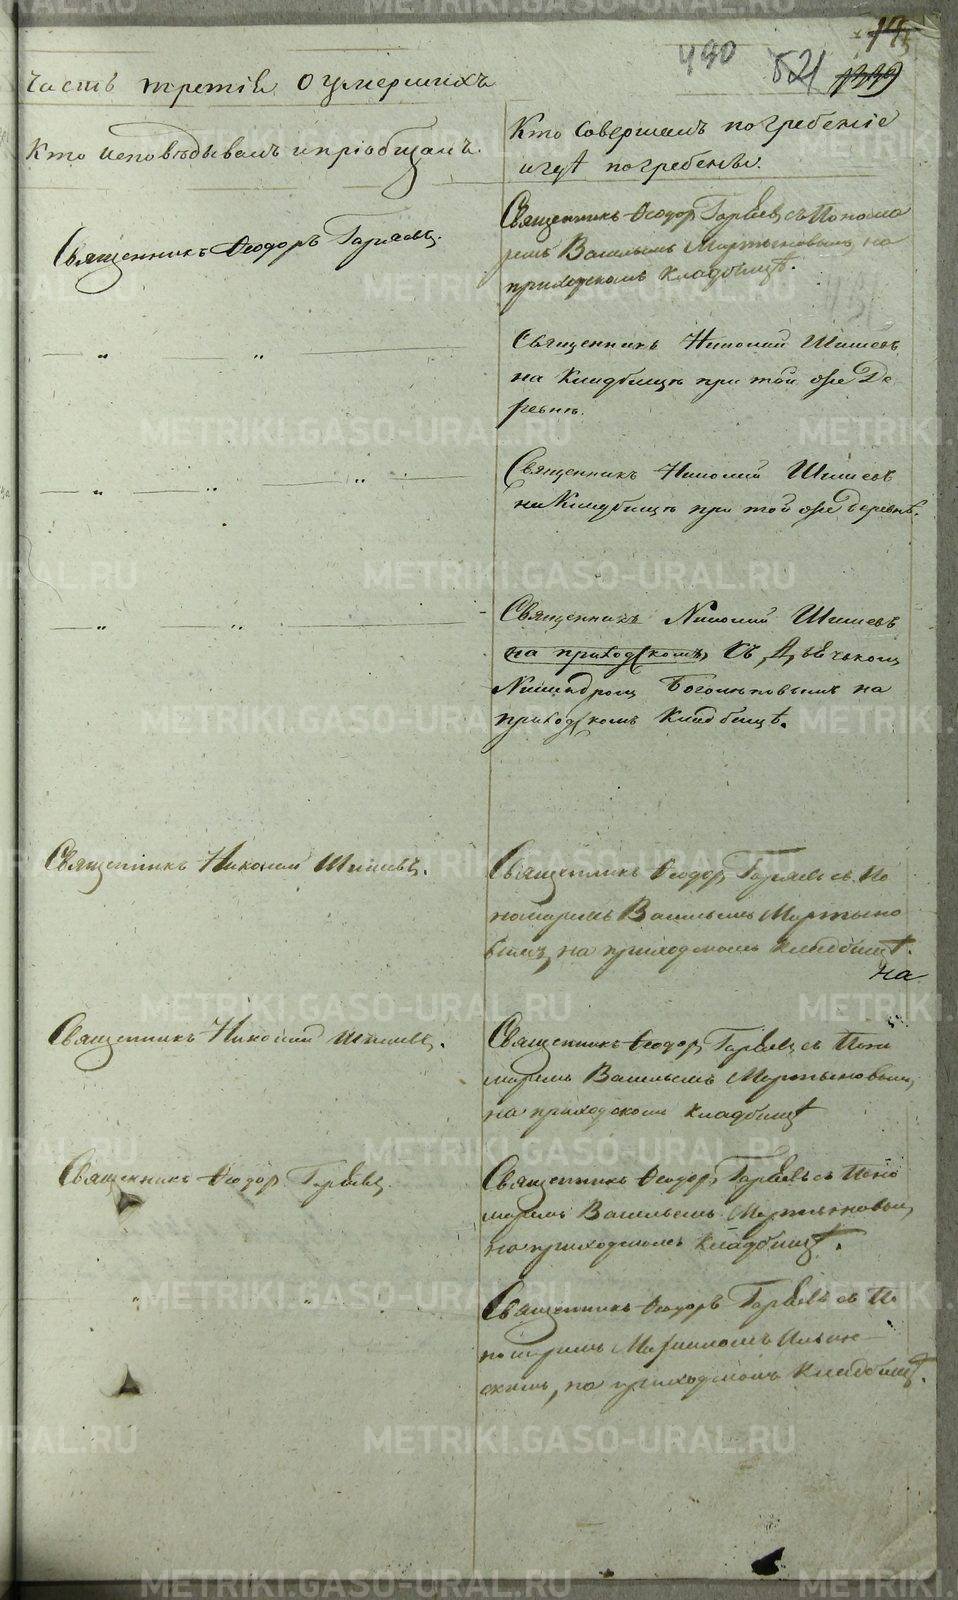 490 521
Часть третія о умершихъ
Кто исповѣдывалъ и пріобщалъ.
Кто совершалъ погребеніе
и гдѣ погребены.
Священникъ Ѳеодоръ Гаряевъ.
Священникъ Ѳеодоръ Гаряевъ съ Понома
ремъ Васильемъ Мартыновымъ, на
приходскомъ кладбищѣ.
— „ — „ —
Священникъ Николай Шишевъ
на Кладбищѣ при той же Де
ревнѣ.
— „ — „ — „ —
Священникъ Николай Шишевъ
на Кладбищѣ при той же Деревнѣ.
— „ — „ —
Священникъ Николай Шишевъ
на приходскомъ съ Дьячкомъ
Никандромъ на
приходскомъ Кладбищѣ.
Священникъ Николай Шишевъ.
Священникъ Ѳеодоръ Гаряевъ съ По
номаремъ Васильемъ Мартыно
вымъ, на приходскомъ кладбищѣ.
на
Священникъ Николай Шишевъ.
Священникъ Ѳеодоръ Гаряевъ съ Поно
маремъ Васильемъ Мартыновымъ,
на приходскомъ кладбищѣ
Священникъ Ѳеодоръ Гаряевъ
Священникъ Ѳеодоръ Гаряевъ съ Поно
маремъ Васильемъ Мартыновым,
на приходскомъ кладбищѣ.
„ „
Священникъ Ѳеодоръ Гаряевъ съ По
номаремъ Ильин
скимъ, на приходскомъ кладбищѣ.
METRIKI.GASO-URAL.RU